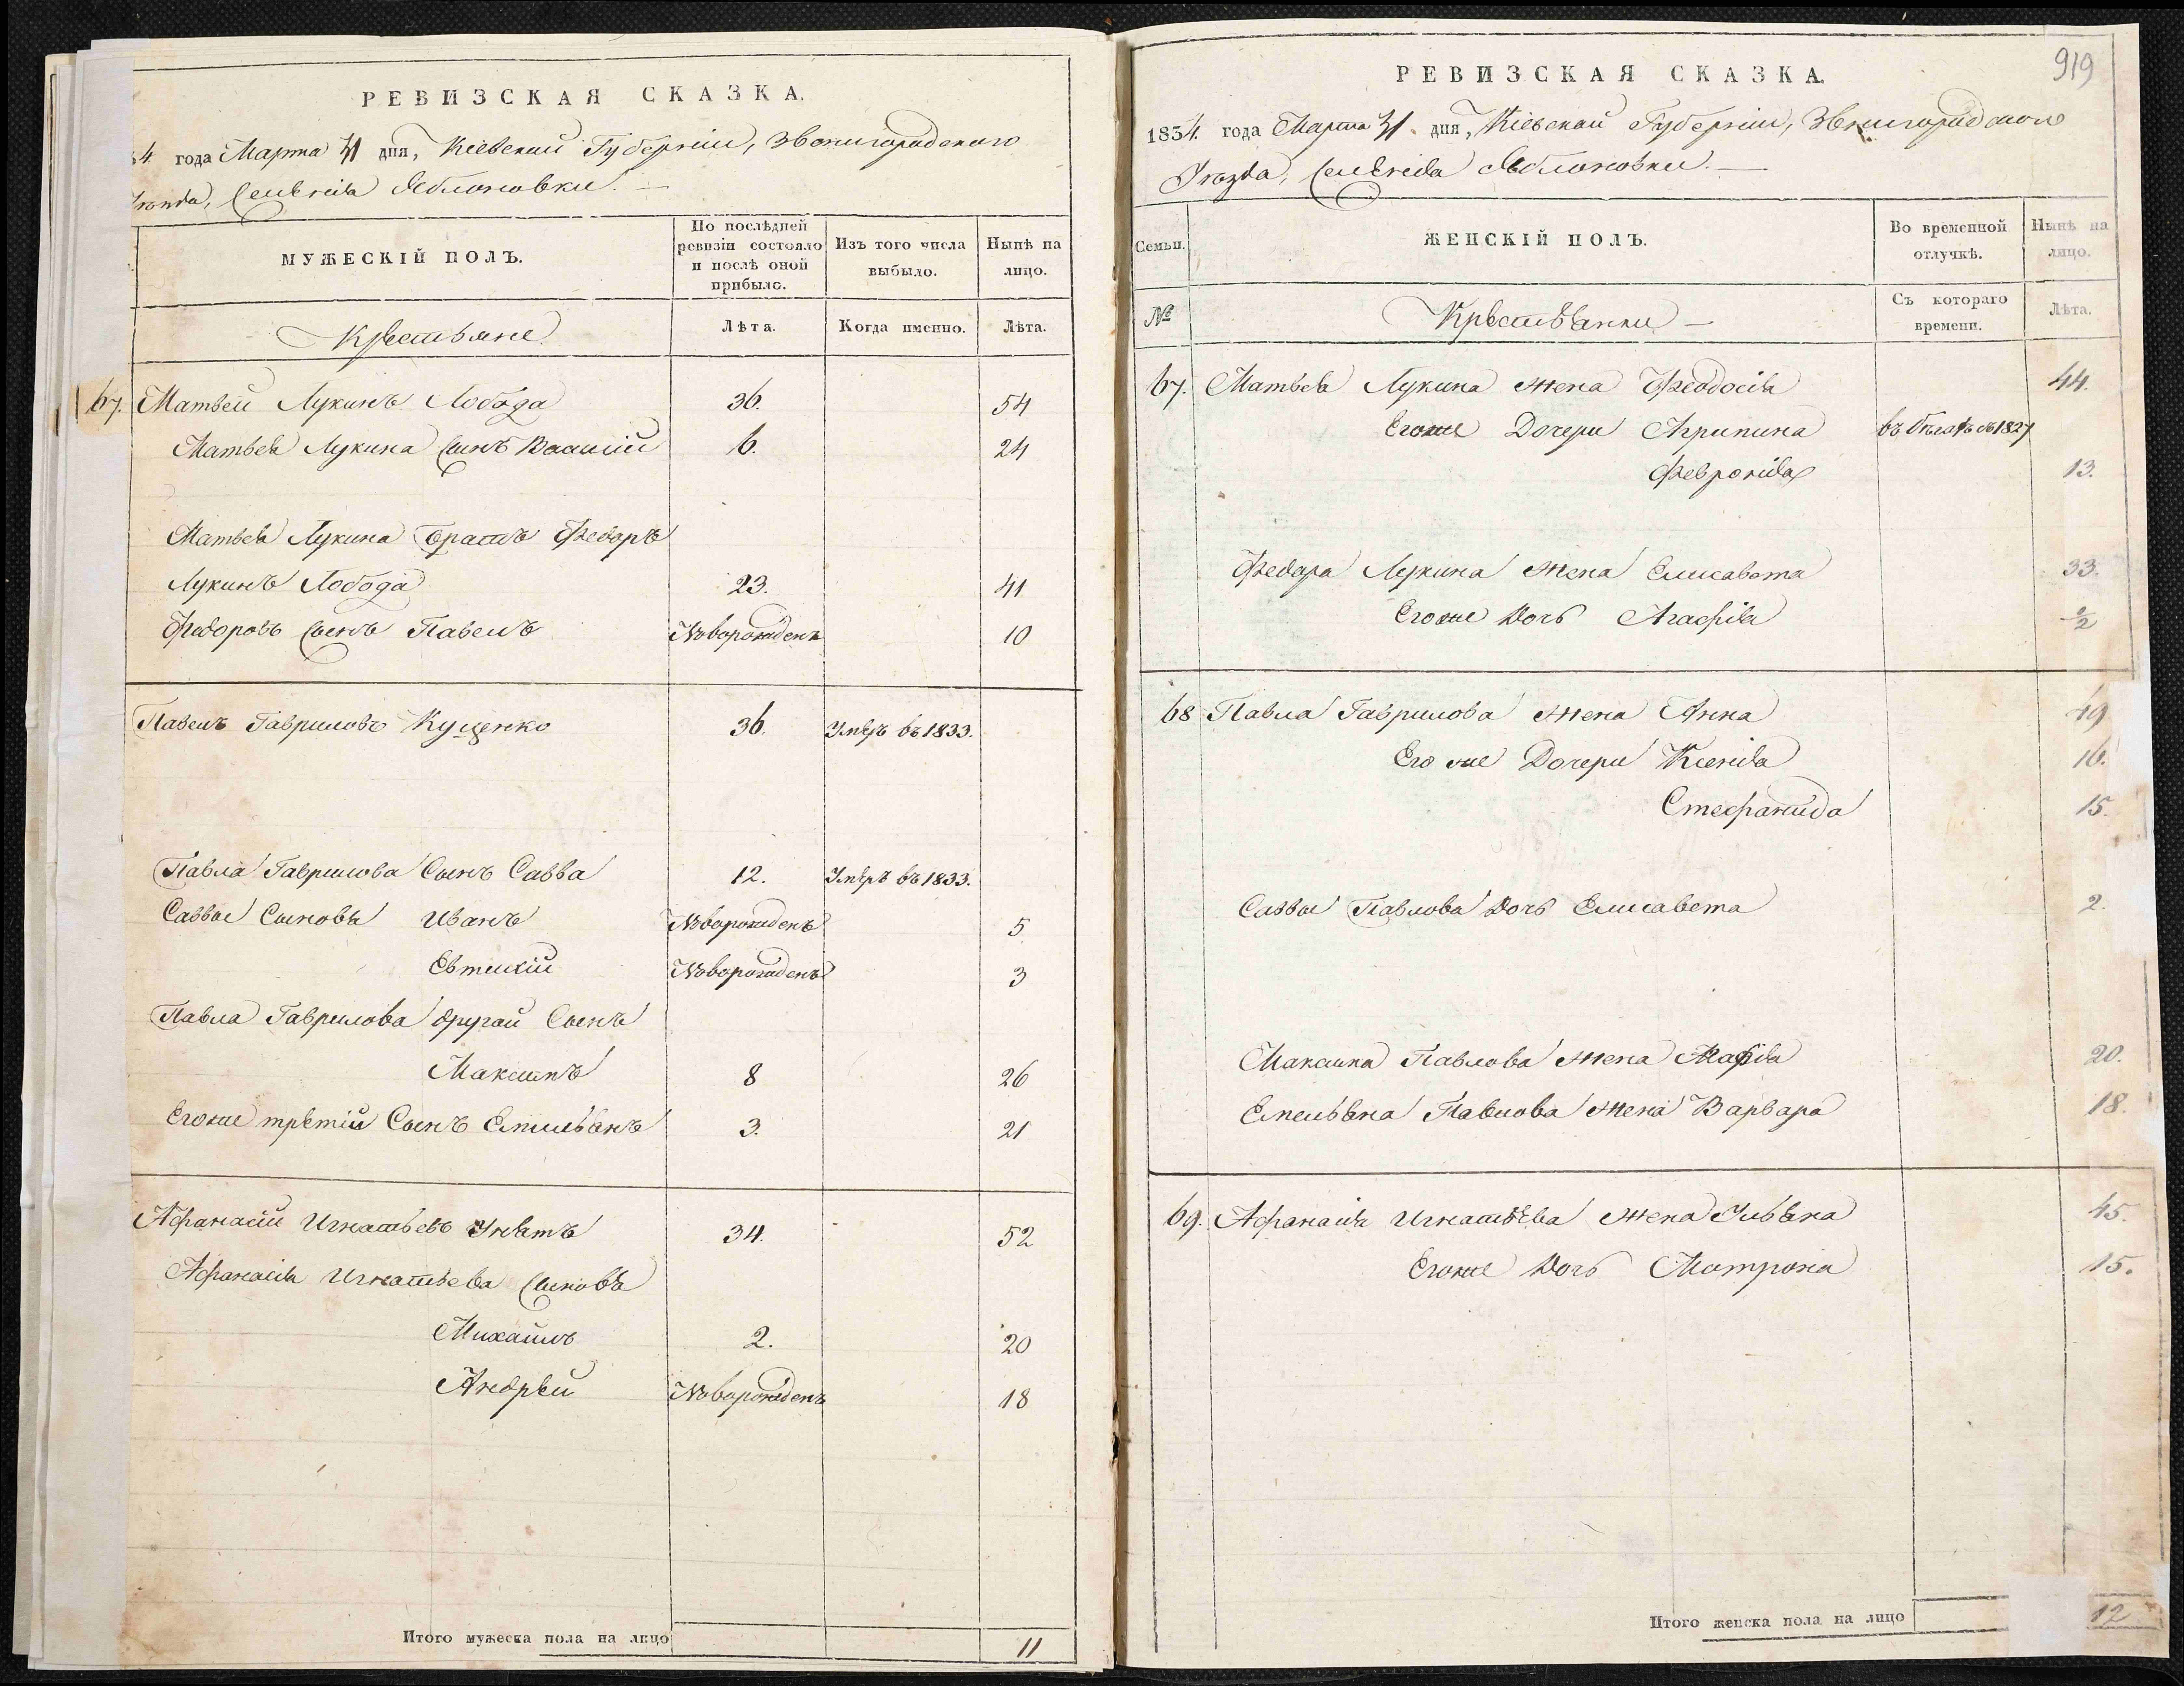 РЕВИЗСКАЯ СКАЗКА.
4 года Марта 31 дня, Кіевской Губерніи, Звенигородского
Уѣзда, Селенія Яблоновки.
МУЖЕСКІЙ ПОЛЪ.
По послѣдней ревизіи состояло и послѣ оной прибыло.
Изъ того числа выбыло.
Нынѣ на лицо.
Крестьяне
Лѣта.
Когда именно.
Лѣта.
67. Матвей Лукинъ Лобода 36. 54
Матвея Лукина Сынъ Василій 6. 24
Матвея Лукина Братъ Федоръ
Лукинъ Лобода 23. 41
Федоровъ Сынъ Павелъ Новорожденъ 10
Павелъ Гавриловъ Кущенко 36. Умеръ въ 1833.
Павла Гаврилова Сынъ Савва 12. Умеръ въ 1833.
Саввы Сыновья Иванъ Новорожденъ 5.
Евтихій Новорожденъ 3
Павла Гаврилова другой Сынъ
Максимъ 8 26
Егоже третій Сынъ Емельянъ 3. 21
Афанасій Игнатьевъ 34. 52
Афанасія Игнатьева Сыновья
Михайлъ 2. 20
Андрей Новорожденъ 18
Итого мужеска пола на лицо 11
919
РЕВИЗСКАЯ СКАЗКА.
1834. года Марта 31 дня, Кіевской Губерніи, Звенигородского
Уѣзда, Селенія Яблоновки.
Семьи.
ЖЕНСКІЙ ПОЛЪ.
Во временной отлучкѣ.
Нынѣ на лицо.
№
Крестьянки
Съ котораго времени.
Лѣта.
67. Матвея Лукина жена Феодосія 44.
Егоже Дочери Агрипина въ бѣгахъ съ 1827
Февронія 13.
Федора Лукина жена Елисавета 33.
Егоже Дочь Агафія ½
68 Павла Гаврилова жена Анна 49
Его же Дочери Ксенія 16.
Стефанида 15.
Саввы Павлова Дочь Елисавета 2.
Максима Павлова жена Марія 20.
Емельяна Павлова жена Варвара 18.
69. Афанасія Игнатьева жена Ульяна 45.
Егоже Дочь Матрона 15.
Итого женска пола на лицо 12